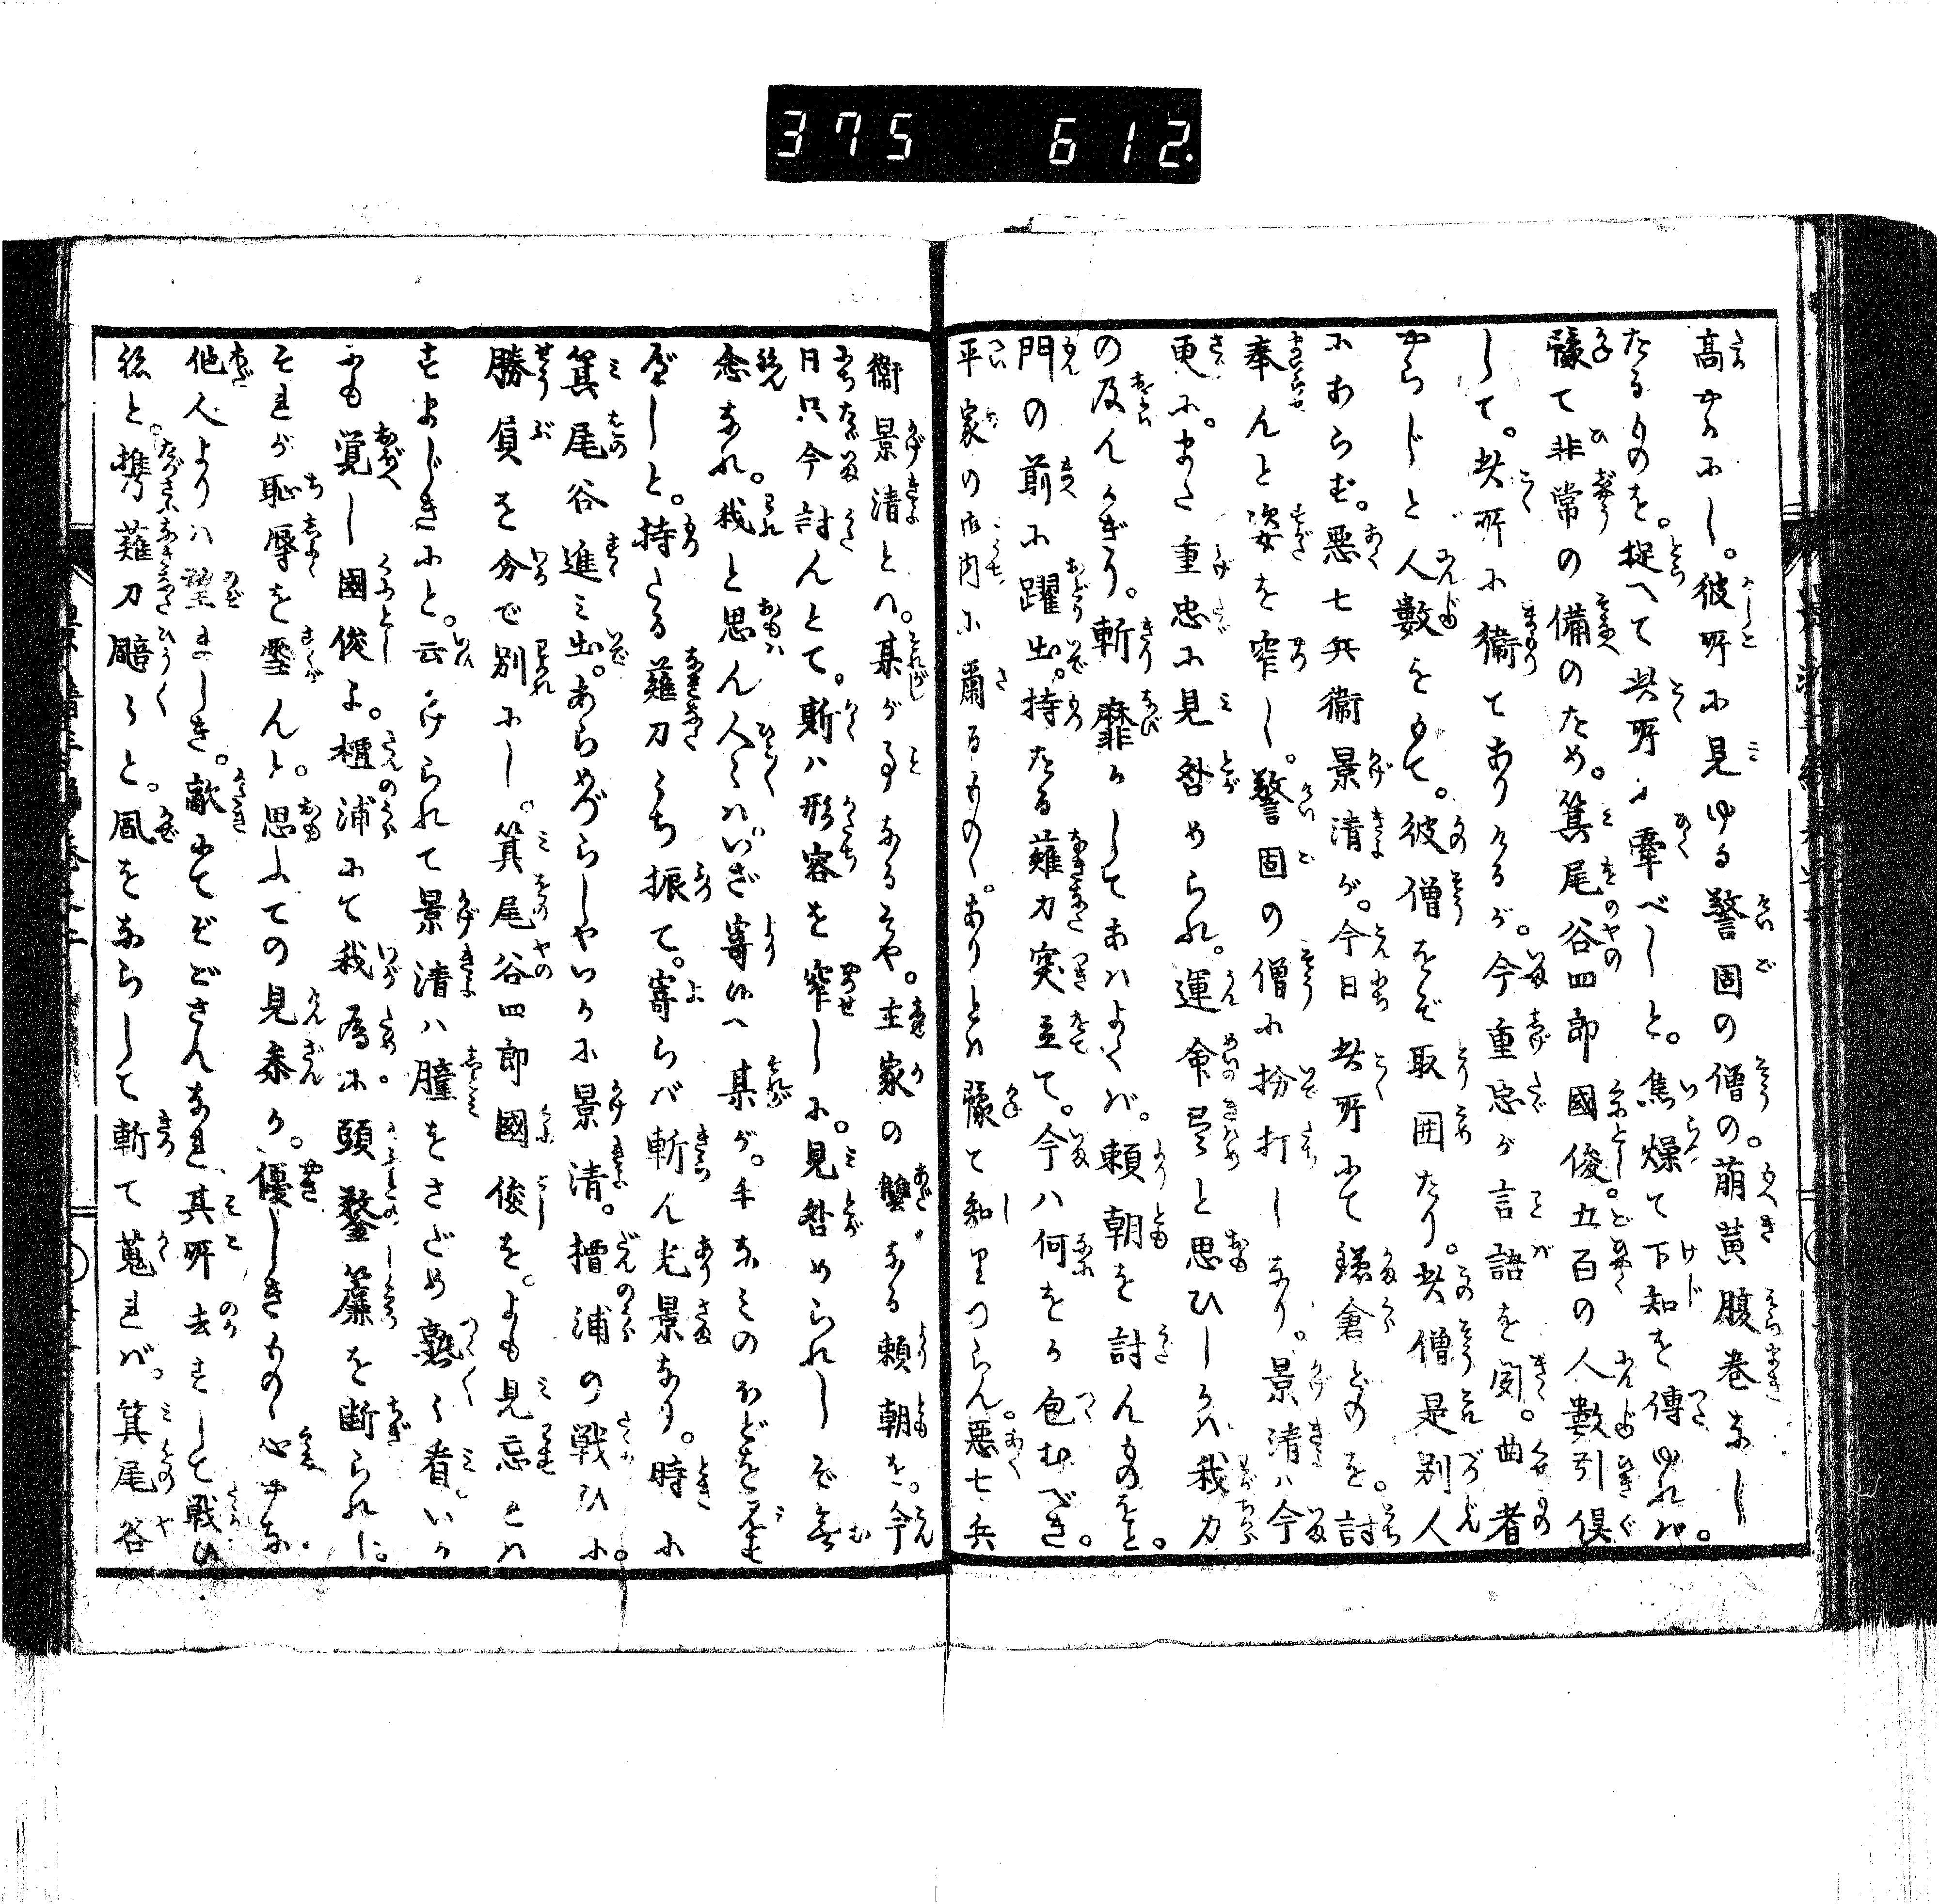 375 612.
高やかにし。彼所に見ゆる警固の僧の。萠黄腹巻なし
たるものを。捉へて此所に牽べしと。焦燥て下知を傳ゆれバ。
豫て非常の備のため。箕尾谷四郎國俊。五百の人數引倶
して。此所に衞てありけるが。今重忠が言語を聞。曲者
やらじと人數をもて。彼僧をぞ取囲たり。此僧是別人
にあらず。惡七兵衞景清が。今日此所にて鎌倉どのを。討
奉んと姿を窄し。警固の僧に扮打しなり。景清ハ今
更に。また重忠に見咎められ。運命と思ひしかバ我力
の及んかぎり。斬靡かしてあハよくバ。頼朝を討んものをと。
門の前に躍出。持たる薙刀突立て。今ハ何をか包むべき。
平家の御内に爾るもの。ありとハ豫て知りつらん。惡七兵
衞景清とハ。某が事なるぞや。主家の讐なる頼朝を。今
日只今討んとて。斯ハ形容を窄しに。見咎められしぞ無
念なれ。我と思ん人々ハ。いざ寄候へ某が。手なミのほどを見す
べしと。持たる薙刀うち振て。寄らバ斬ん光景なり。時に
箕尾谷進ミ出。あらめづらしやいかに景清。檀浦の戦ひに。
勝負を分で別にし。箕尾谷四郎國俊を。よも見忘とハ
すまじきにと。云かけられて景清ハ瞳をさだめ熟々看。いか
にも覚し國俊よ。檀浦にて我為に頭鍪簾を断られし。
それが恥辱を雪んと。思ふての見參か。優しきもの心やな。
他人よりハ望ましき。敵にてぞござんなれ、其所去ずして戦ひ
ねと。携薙刀颼々と。風をならして斬て蒐れバ。箕尾谷